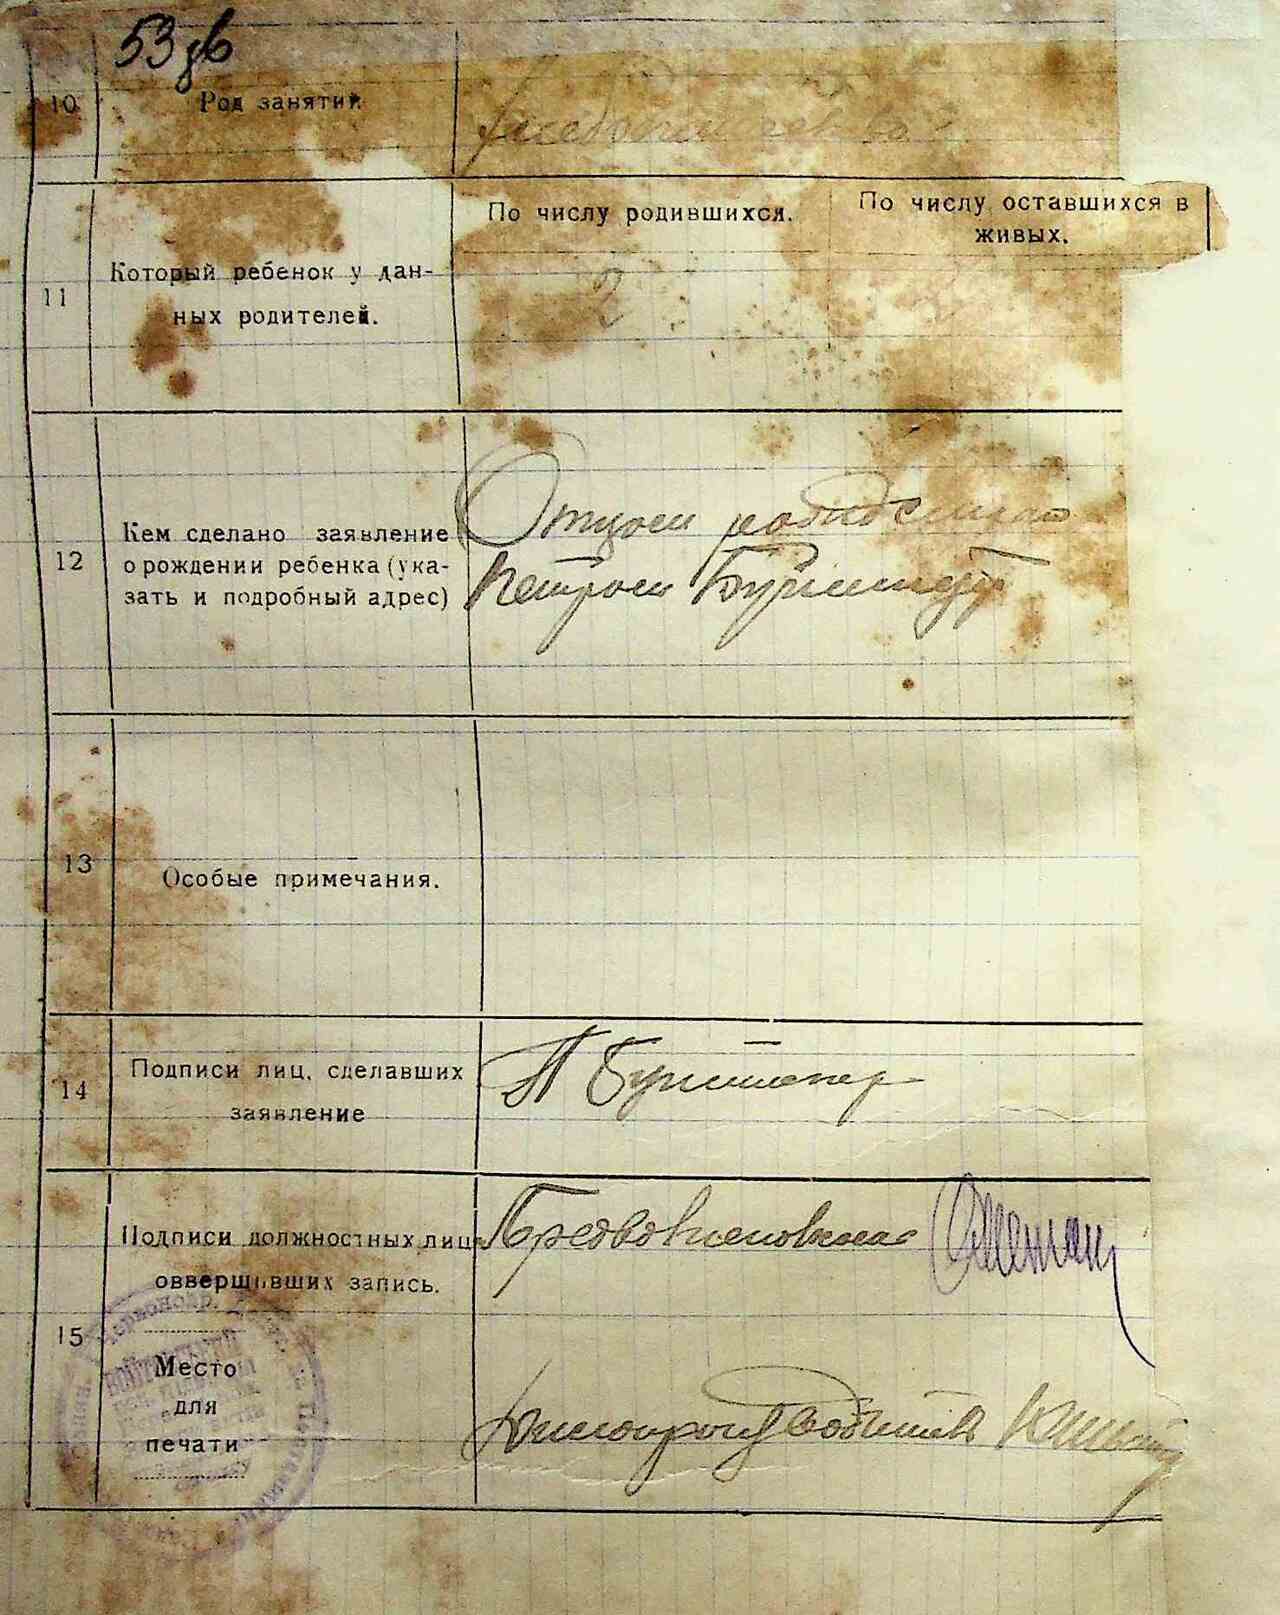 53 об
10
Род занятий
11
Который ребенок у дан-
ных родителей.
По числу родившихся.
По числу оставшихся в
живых.
2
12
Кем сделано заявление
о рождении ребенка (ука-
зать и подробный адрес)
Отцом
Петром
13
Особые примечания.
14
Подписи лиц, сделавших
заявление
П
15
Подписи должностных лиц
оввершивших запись.
Место
для
печати
Делопроизводитель